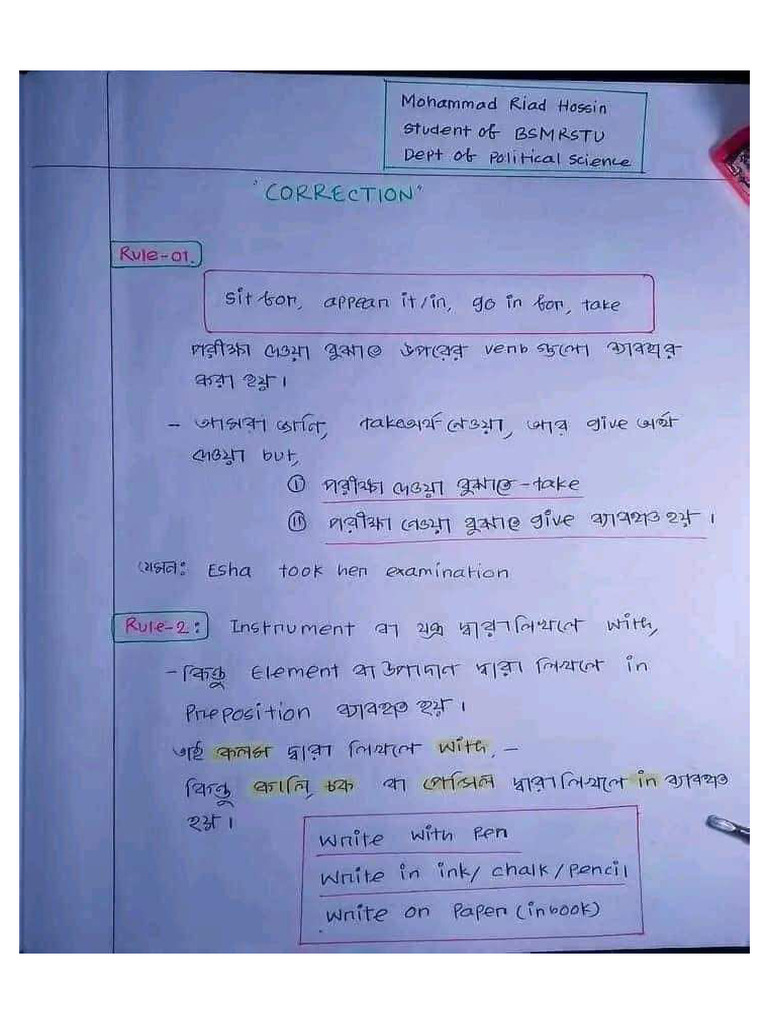 Mohammad Riad Hossin
Student of BSMRSTU
Dept of Political Science
"CORRECTION"
Rule-01.
Sit for, appear it/in, go in for, take
পরীক্ষা দেওয়া বুঝাতে উপরের verb গুলো ব্যবহার
করা হয়।
- আমরা জানি, take অর্থ নেওয়া, আর give অর্থ
দেওয়া but,
(i) পরীক্ষা দেওয়া বুঝাতে - take
(ii) পরীক্ষা নেওয়া বুঝাতে give ব্যবহৃত হয়।
যেমন: Esha took her examination
Rule-2: Instrument বা যন্ত্র দ্বারা লিখলে with,
- কিন্তু Element বা উপাদান দ্বারা লিখলে in
Preposition ব্যবহৃত হয়।
তাই কলম দ্বারা লিখলে with, -
কিন্তু কালি, চক বা পেন্সিল দ্বারা লিখলে in ব্যবহৃত
হয়।
Write with pen
Write in ink/ chalk/pencil
Write on Paper (in book)